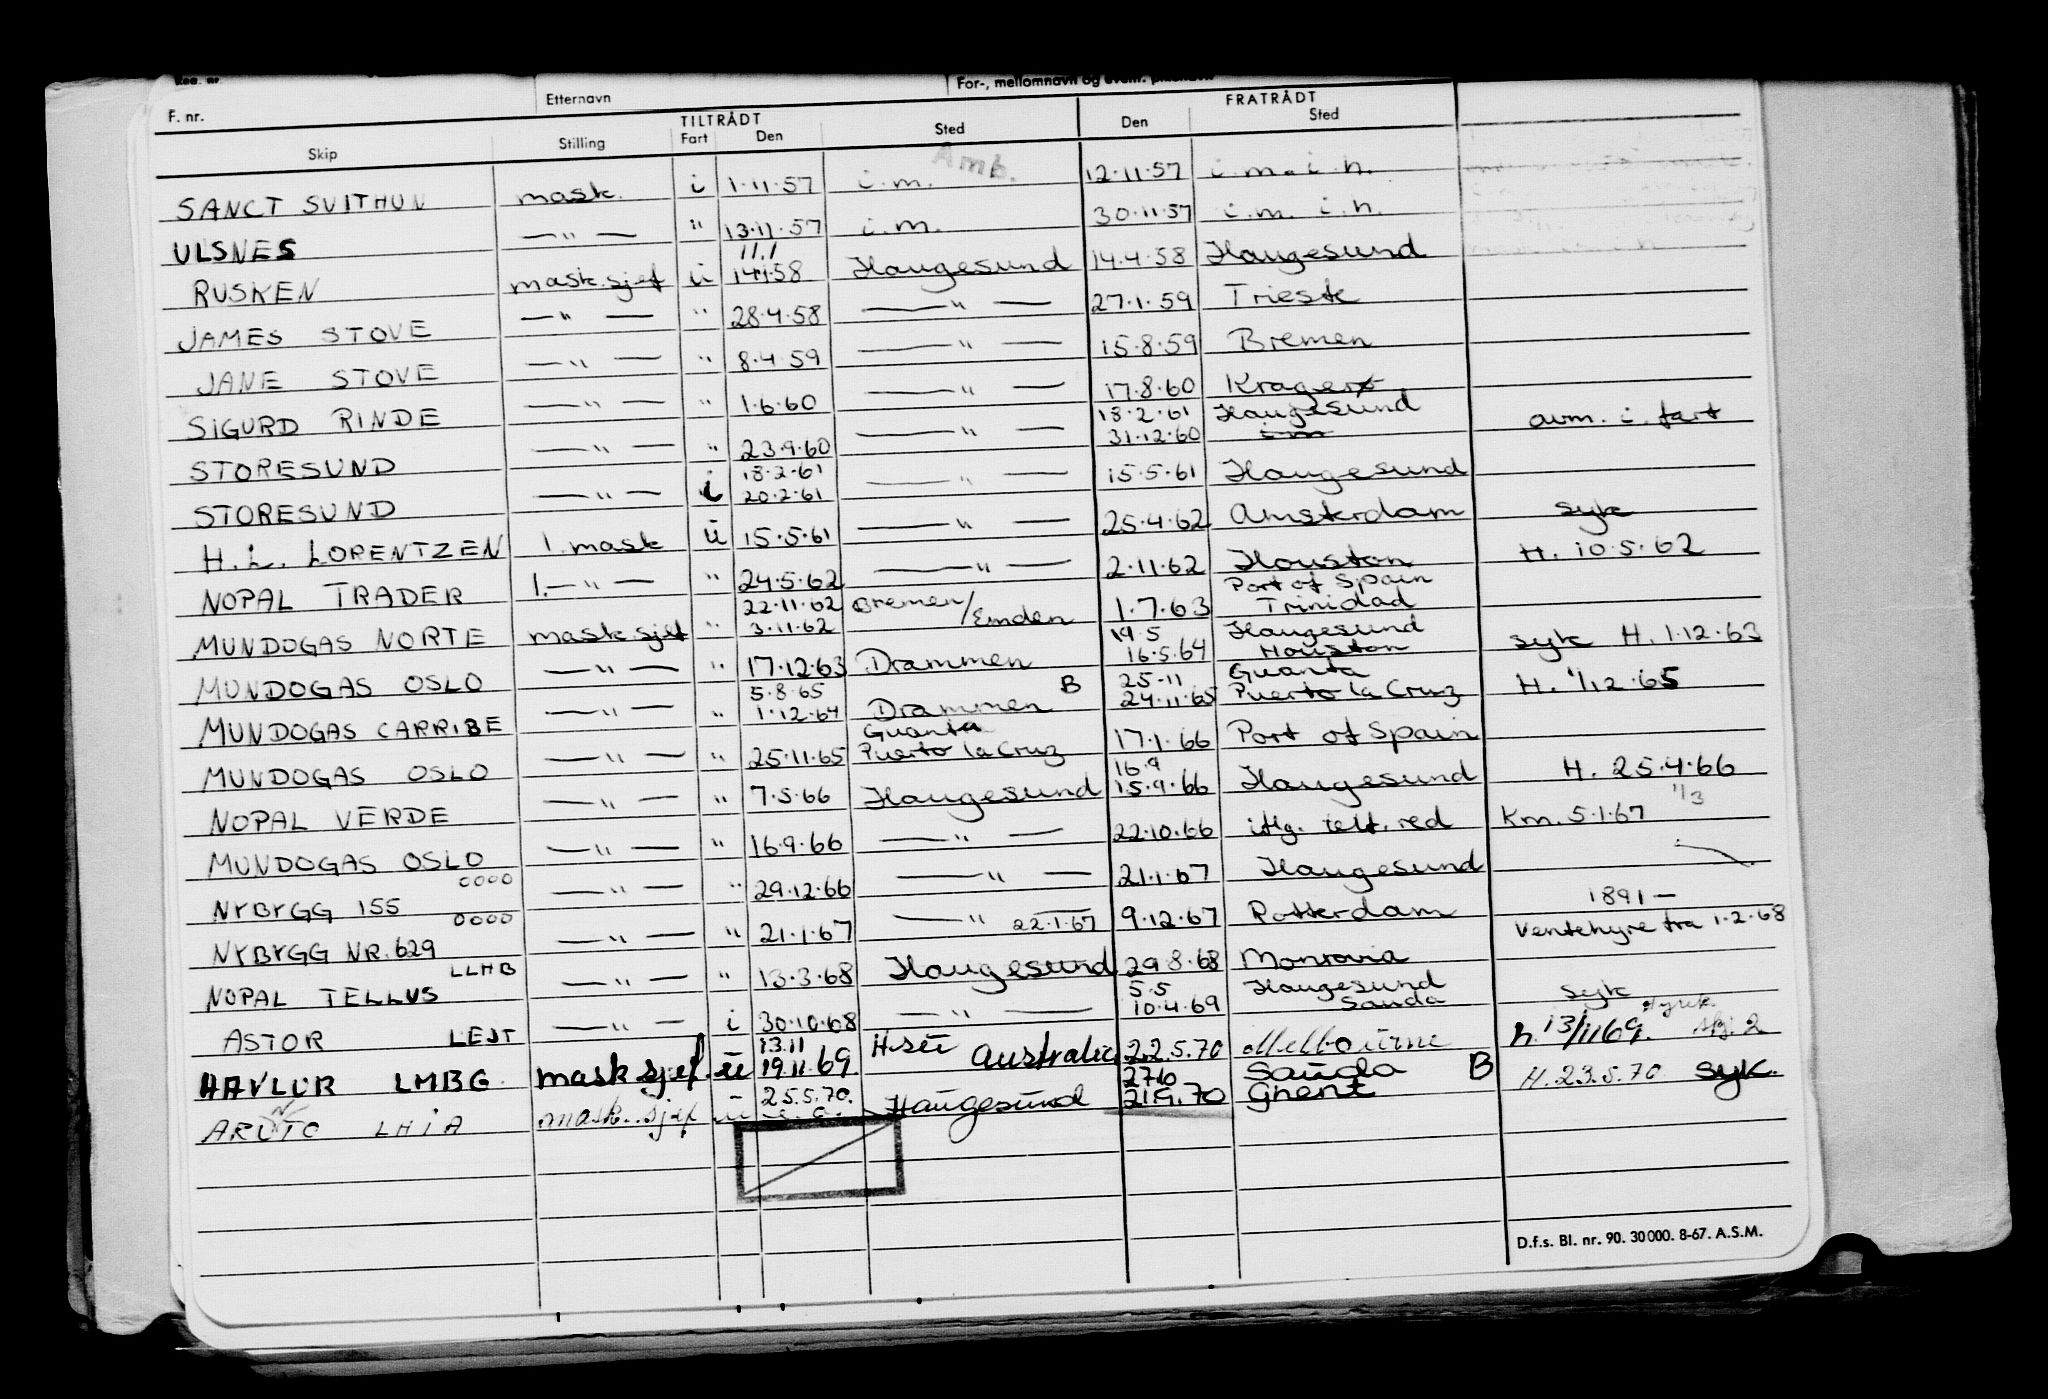 Reg. nr.
F. nr. Etternavn For-, mellomnavn og event. pikenavn
TILTRÅDT FRATRÅDT
Skip Stilling Fart Den Sted Den Sted
Amb.
SANCT SVITHUN mask. i 1.11.57 i.m. 12.11.57 i.m. i.h.
ULSNES —"— " 13.11.57 i.m. 30.11.57 i.m. i.h.
11.1
RUSKEN mask.sjef ü 14.1.58 Haugesund 14.4.58 Haugesund
JAMES STOVE —"— " 28.4.58 —"— 27.1.59 Trieste
JANE STOVE —"— " 8.4.59 —"— 15.8.59 Bremen
SIGURD RINDE —"— " 1.6.60 —"— 17.8.60 Kragerø
18.2.61 Haugesund
STORESUND —"— " 23.9.60 —"— 31.12.60 i m avm. i. fart
18.2.61
STORESUND —"— i 20.2.61 —"— 15.5.61 Haugesund
H.L. LORENTZEN 1. mask ü 15.5.61 —"— 25.4.62 Amsterdam syk
NOPAL TRADER 1.—"— " 24.5.62 —"— 2.11.62 Houston H. 10.5.62
22.11.62 Port of Spain
MUNDOGAS NORTE mask.sjef " 3.11.62 Bremen/Emden 1.7.63 Trinidad
19.5 Haugesund
MUNDOGAS OSLO —"— " 17.12.63 Drammen 16.5.64 Houston syk H. 1.12.63
5.8.65 B 25.11 Guanta
MUNDOGAS CARRIBE —"— " 1.12.64 Drammen 24.11.65 Puerto la Cruz H. 1/12.65
Guanta
MUNDOGAS OSLO —"— " 25.11.65 Puerto la Cruz 17.1.66 Port of Spain
16.9
NOPAL VERDE —"— " 7.5.66 Haugesund 15.9.66 Haugesund H. 25.4.66
MUNDOGAS OSLO —"— " 16.9.66 —"— 22.10.66 iflg. telf. red Km. 5.1.67 1/3
0000
NYBYGG 155 —"— " 29.12.66 —"— 21.1.67 Haugesund
0000 1891 —
NYBYGG NR. 629 —"— " 21.1.67 —"— 22.1.67 9.12.67 Rotterdam Ventehyre fra 1.2.68
LLHB
NOPAL TELLUS —"— " 13.3.68 Haugesund 29.8.68 Monrovia
5.5 Haugesund
ASTOR LEJT —"— i 30.10.68 —"— 10.4.69 Sauda syk
13.11
HAVLUR LMBG mask sjef. ü 19.11.69 H.sü Australia 22.5.70 Melbourne h. 13/1169. 2
25.5.70. 27.10 Sauda B
LHIA mask. sjef ü Haugesund 21.9.70 Ghent H. 23.5.70 syk.
D.f.s. Bl. nr. 90. 30000. 8-67. A.S.M.